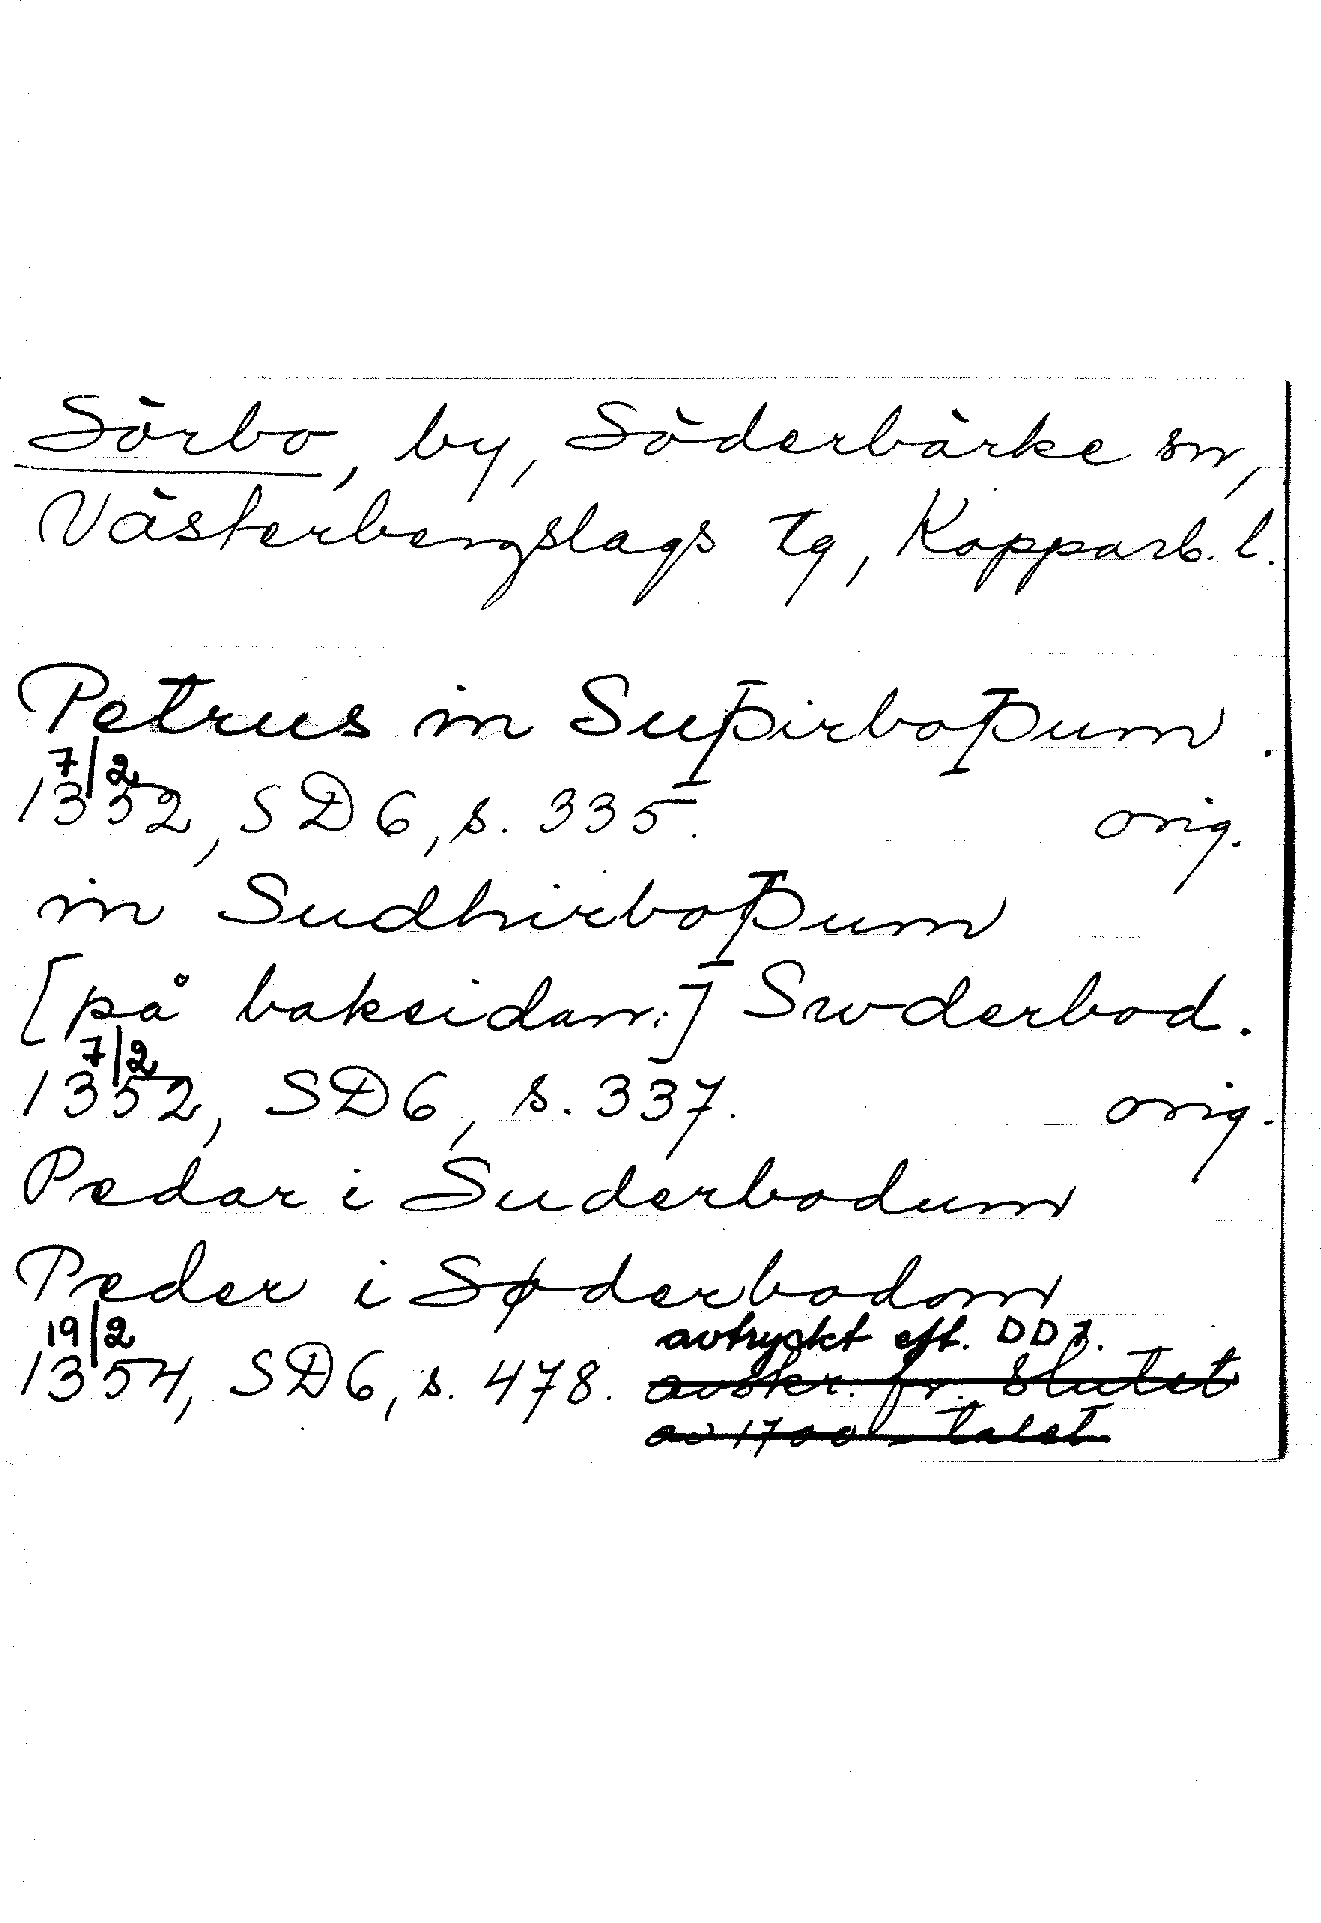 Sörbo, by, Söderbärke sn,
Västerbergslags tg, Kopparb. l.
Petrus in Suþirboþum.
7/2
1352, SD6, s. 335. orig.
in Sudhirboþum
[på baksidan:] Swderbod.
7/2
1352, SD6, s. 337. orig.
Pedar i Suderbodum
Peder i Søderbodom
19/2 avtryckt eft. DD 1.
1354, SD6, s. 478. avskr. fr. slutet
av 1700-talet